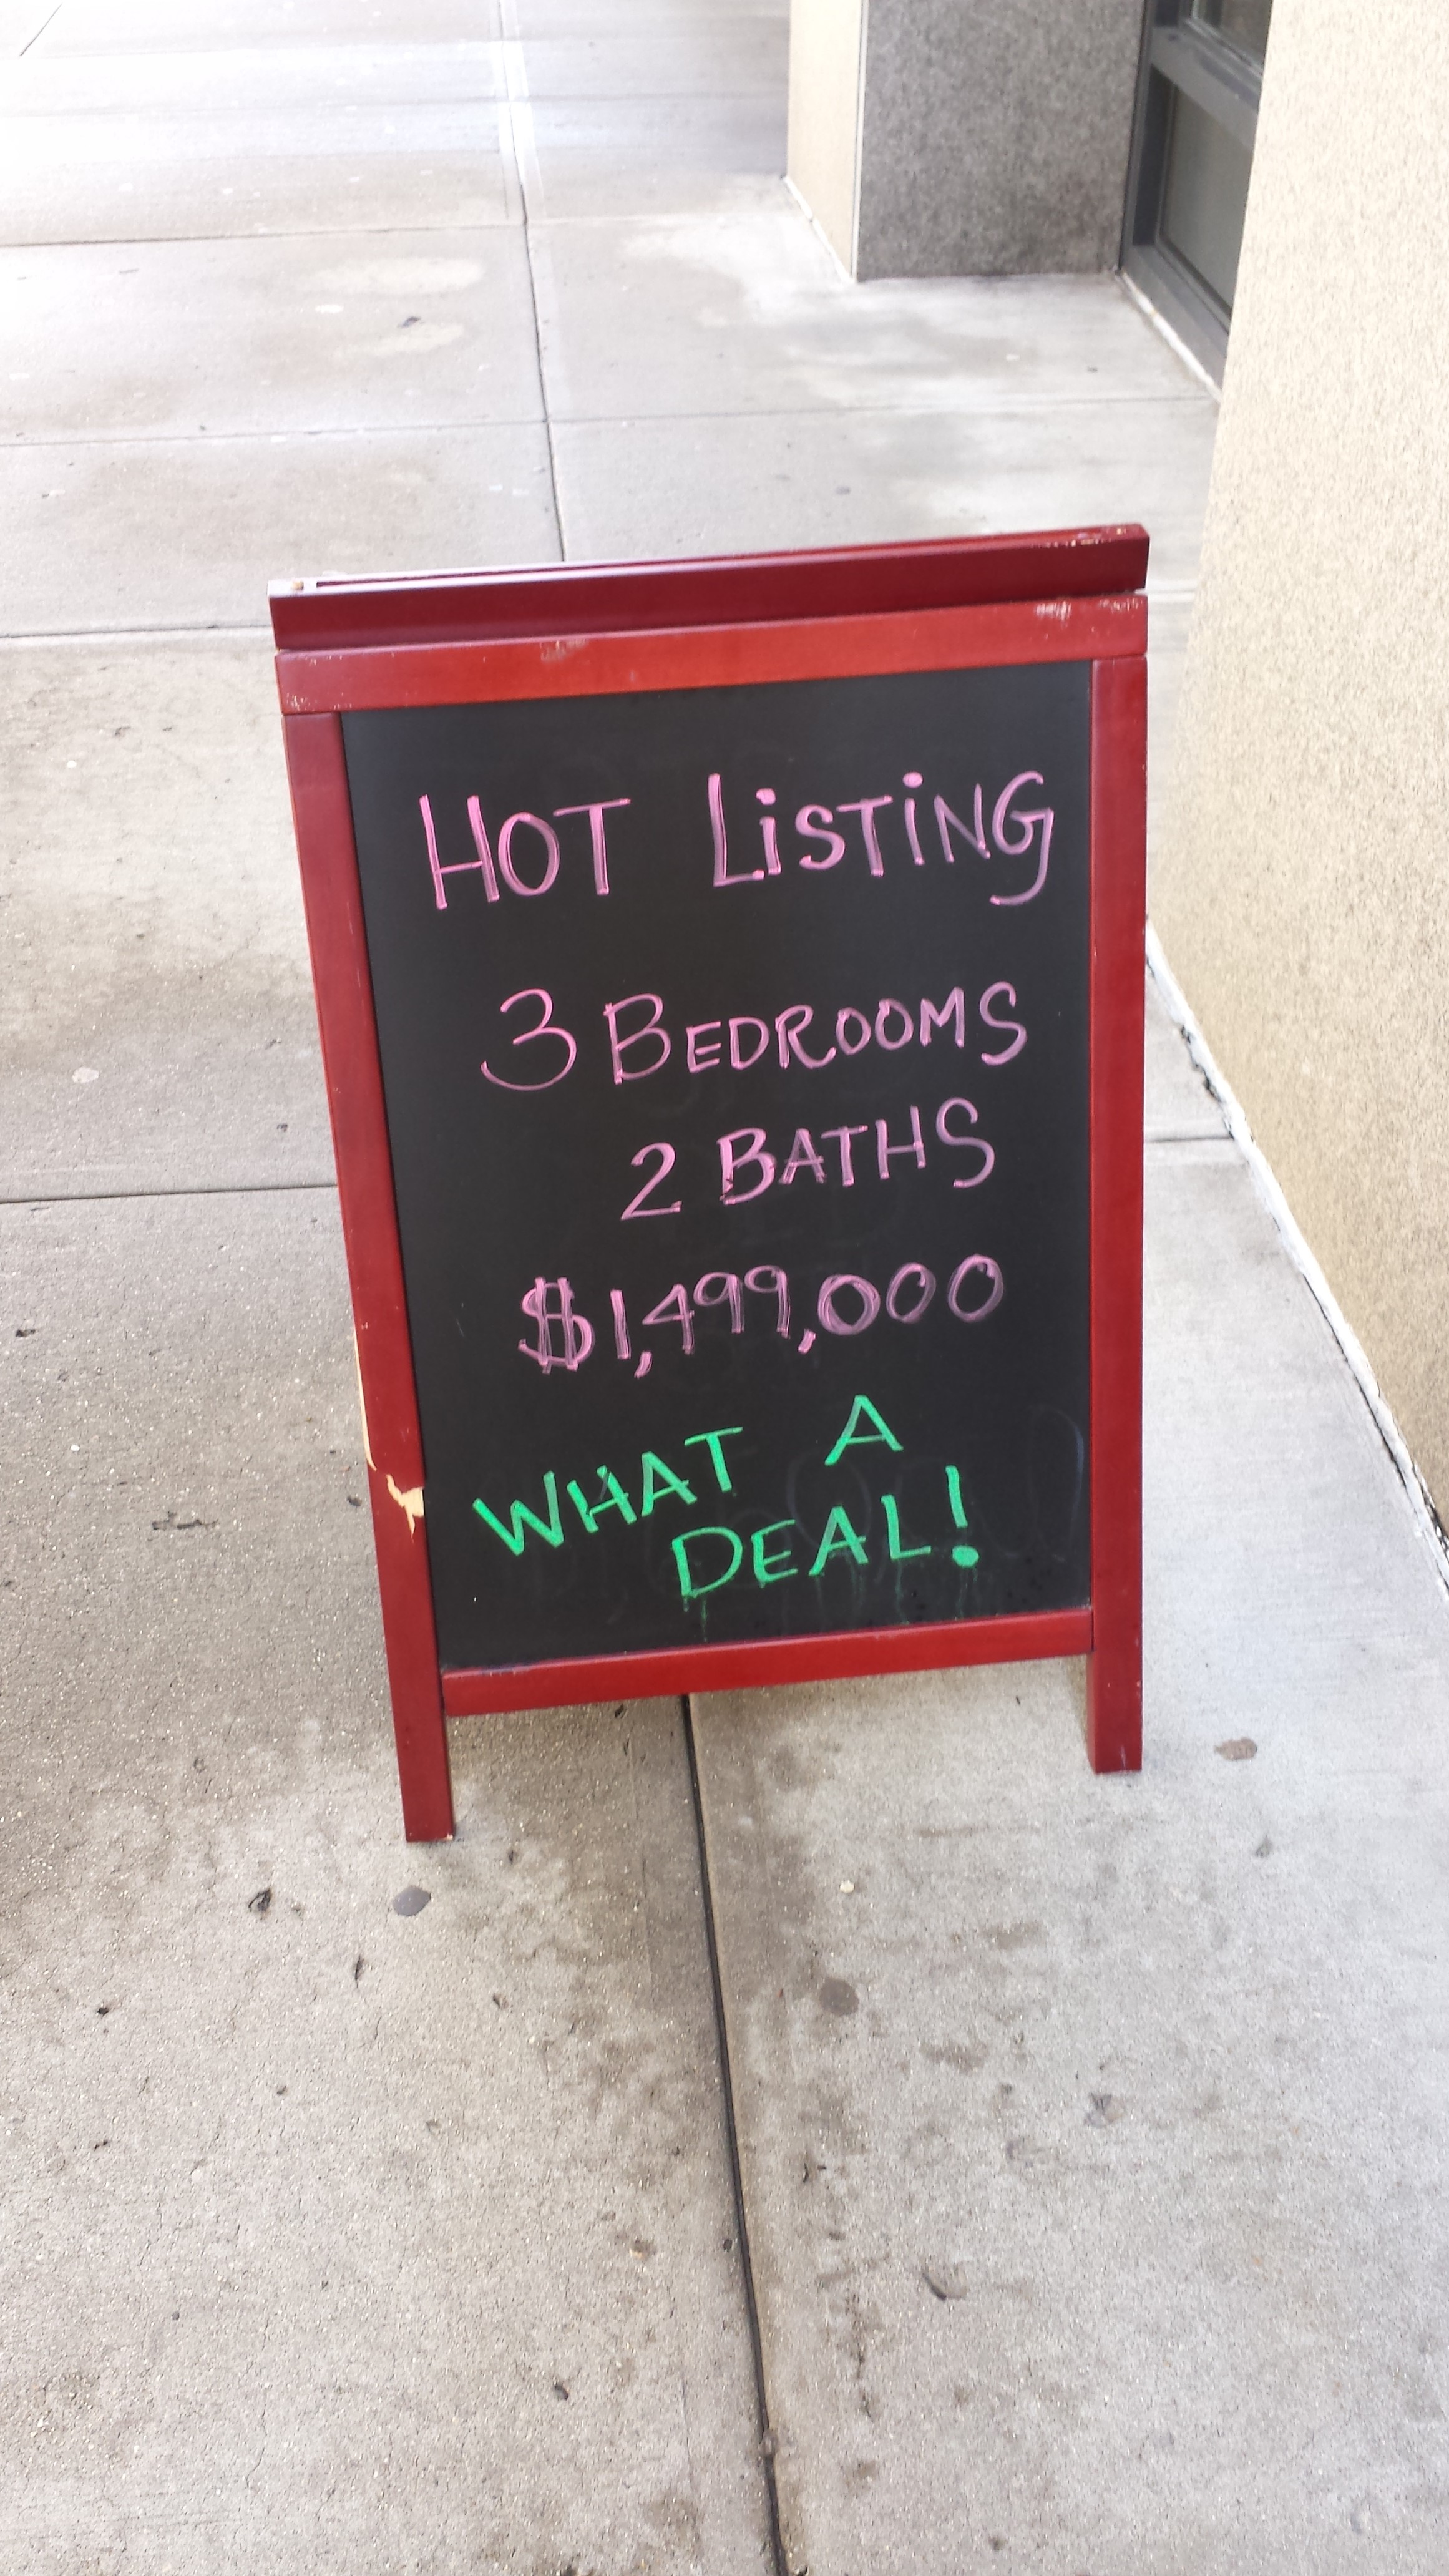 HOT LiSTiNG
3 BEDROOMS
2 BATHS
$1,499,000
WHAT A
DEAL!